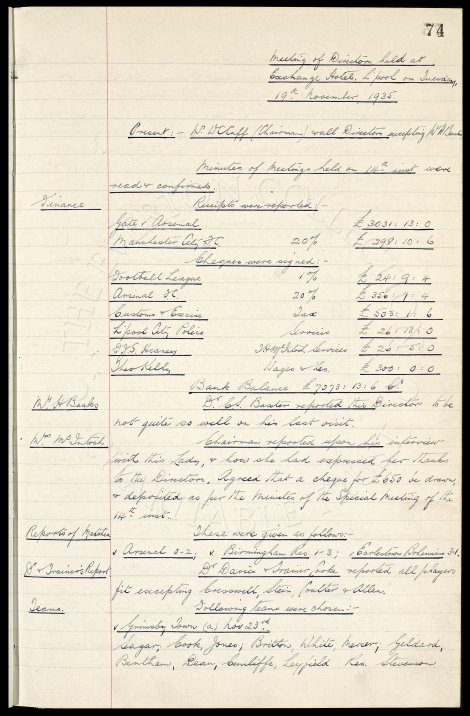 74
Meeting of Directors held at
Exchange Hotel, L'pool on Tuesday,
19th November 1935.
Present:- Mr W C Cuff (Chairman) & all Directors excepting Mr H. Banks
Minutes of Meetings held on 14th inst were
read & confirmed
Finance Receipts were reported:-
Gate v Arsenal £3031:13:0
Manchester City F.C. 20% £1298:10:6
Cheques were signed:-
Football League 1% £24:9:4
Arsenal F.C. 20% £356:9:4
Customs & Excise Tax £503:1:6
L'pool City Police Services £26:13:0
Services £26:5:0
Theo Kelly Wages & Res. £300:0:0
Bank Balance £7073:13:6 Cr
Mr H Banks Dr C.S. Baxter reported this Director to be
not quite so well on his last visit.
Mrs McIntosh Chairman reported upon his interview
with this Lady, & how she had expressed her thanks
to the Directors. Agreed that a cheque for £650 be drawn,
& deposited as per the Minutes of the Special Meeting of the
14th inst.
Reports of Matches These were given as follows:-
v Arsenal 0-2; v Birmingham Res 1-3; v Earlestown Bohemians 3-1.
Dr & Trainer's Report Dr Davies & Trainer Cooke reported all players
fit excepting Cresswell, Stein, Coulter & Allen.
Teams. Following teams were chosen:-
v Grimsby Town (a) Nov 23rd
Sagar, Cook, Jones; Britton, White, Mercer; Geldard,
Bentham, Dean, Cunliffe, Leyfield Res. Stevenson